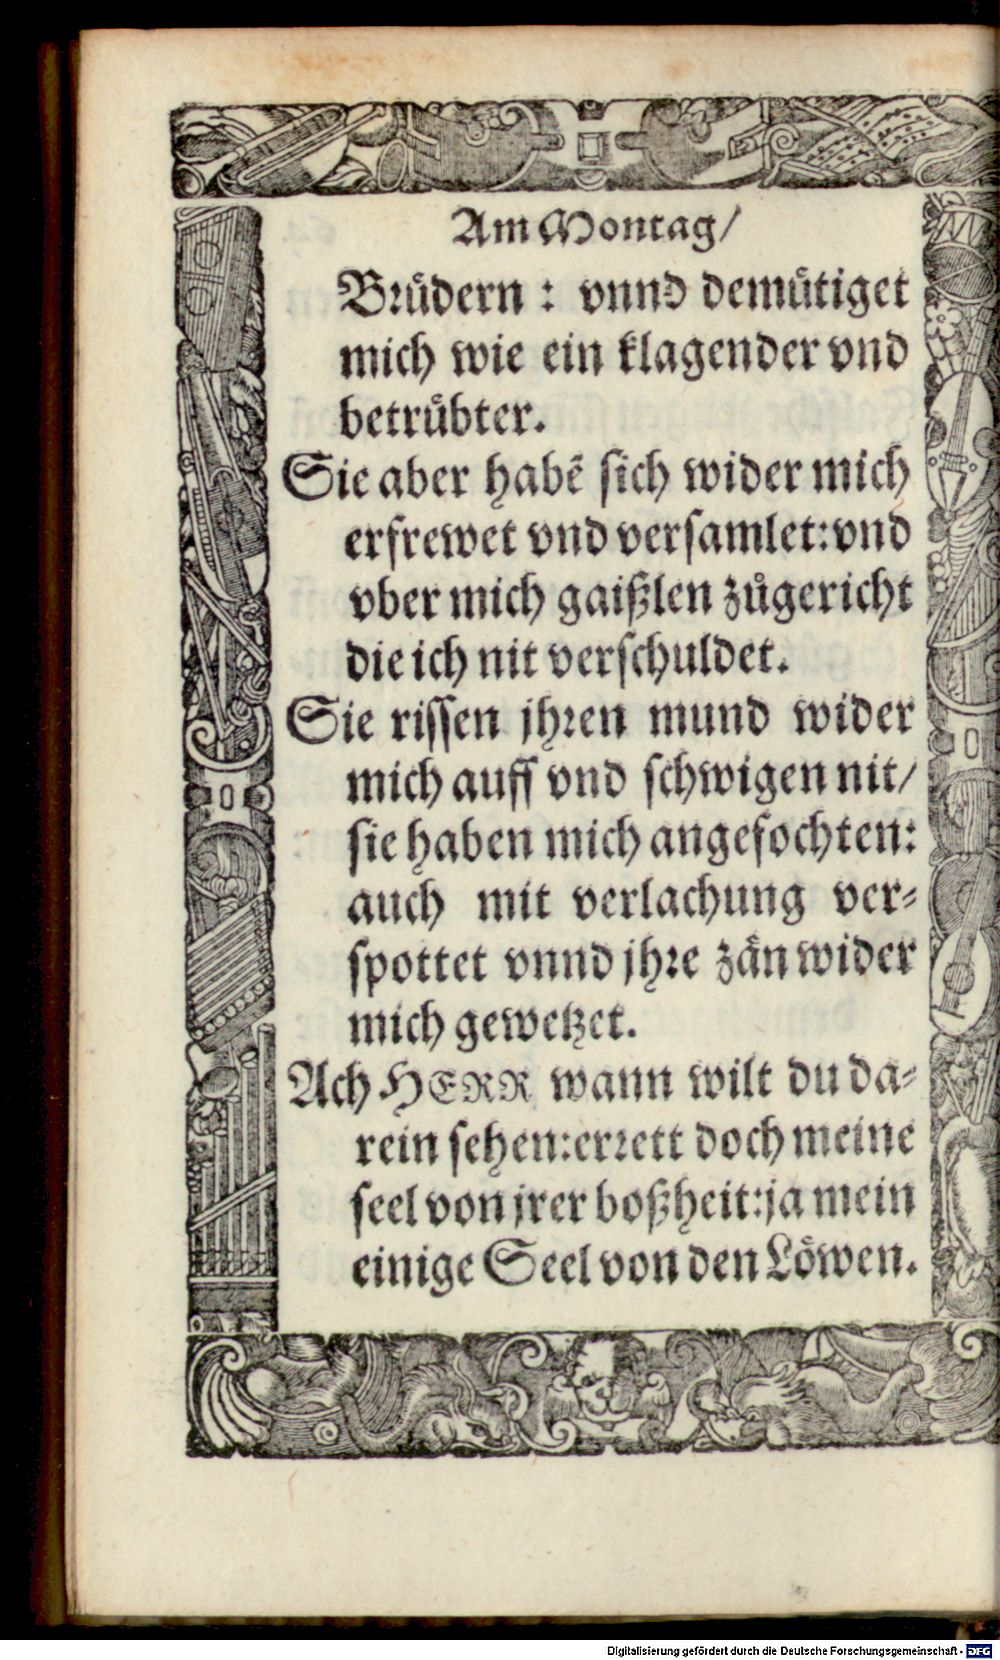 Am Montag/
Brüdern : vnnd demütiget
mich wie ein klagender vnd
betrübter.
Sie aber habẽ sich wider mich
erfrewet vnd versamlet:vnd
vber mich gaißlen zůgericht
die ich nit verschuldet.
Sie rissen jhren mund wider
mich auff vnd schwigen nit/
sie haben mich angefochten:
auch mit verlachung ver⸗
spottet vnnd jhre zän wider
mich gewetzet.
Ach HERR wann wilt du da⸗
rein sehen:errett doch meine
seel von jrer boßheit:ja mein
einige Seel von den Löwen.
Digitalisierung gefördert durch die Deutsche Forschungsgemeinschaft - DFG